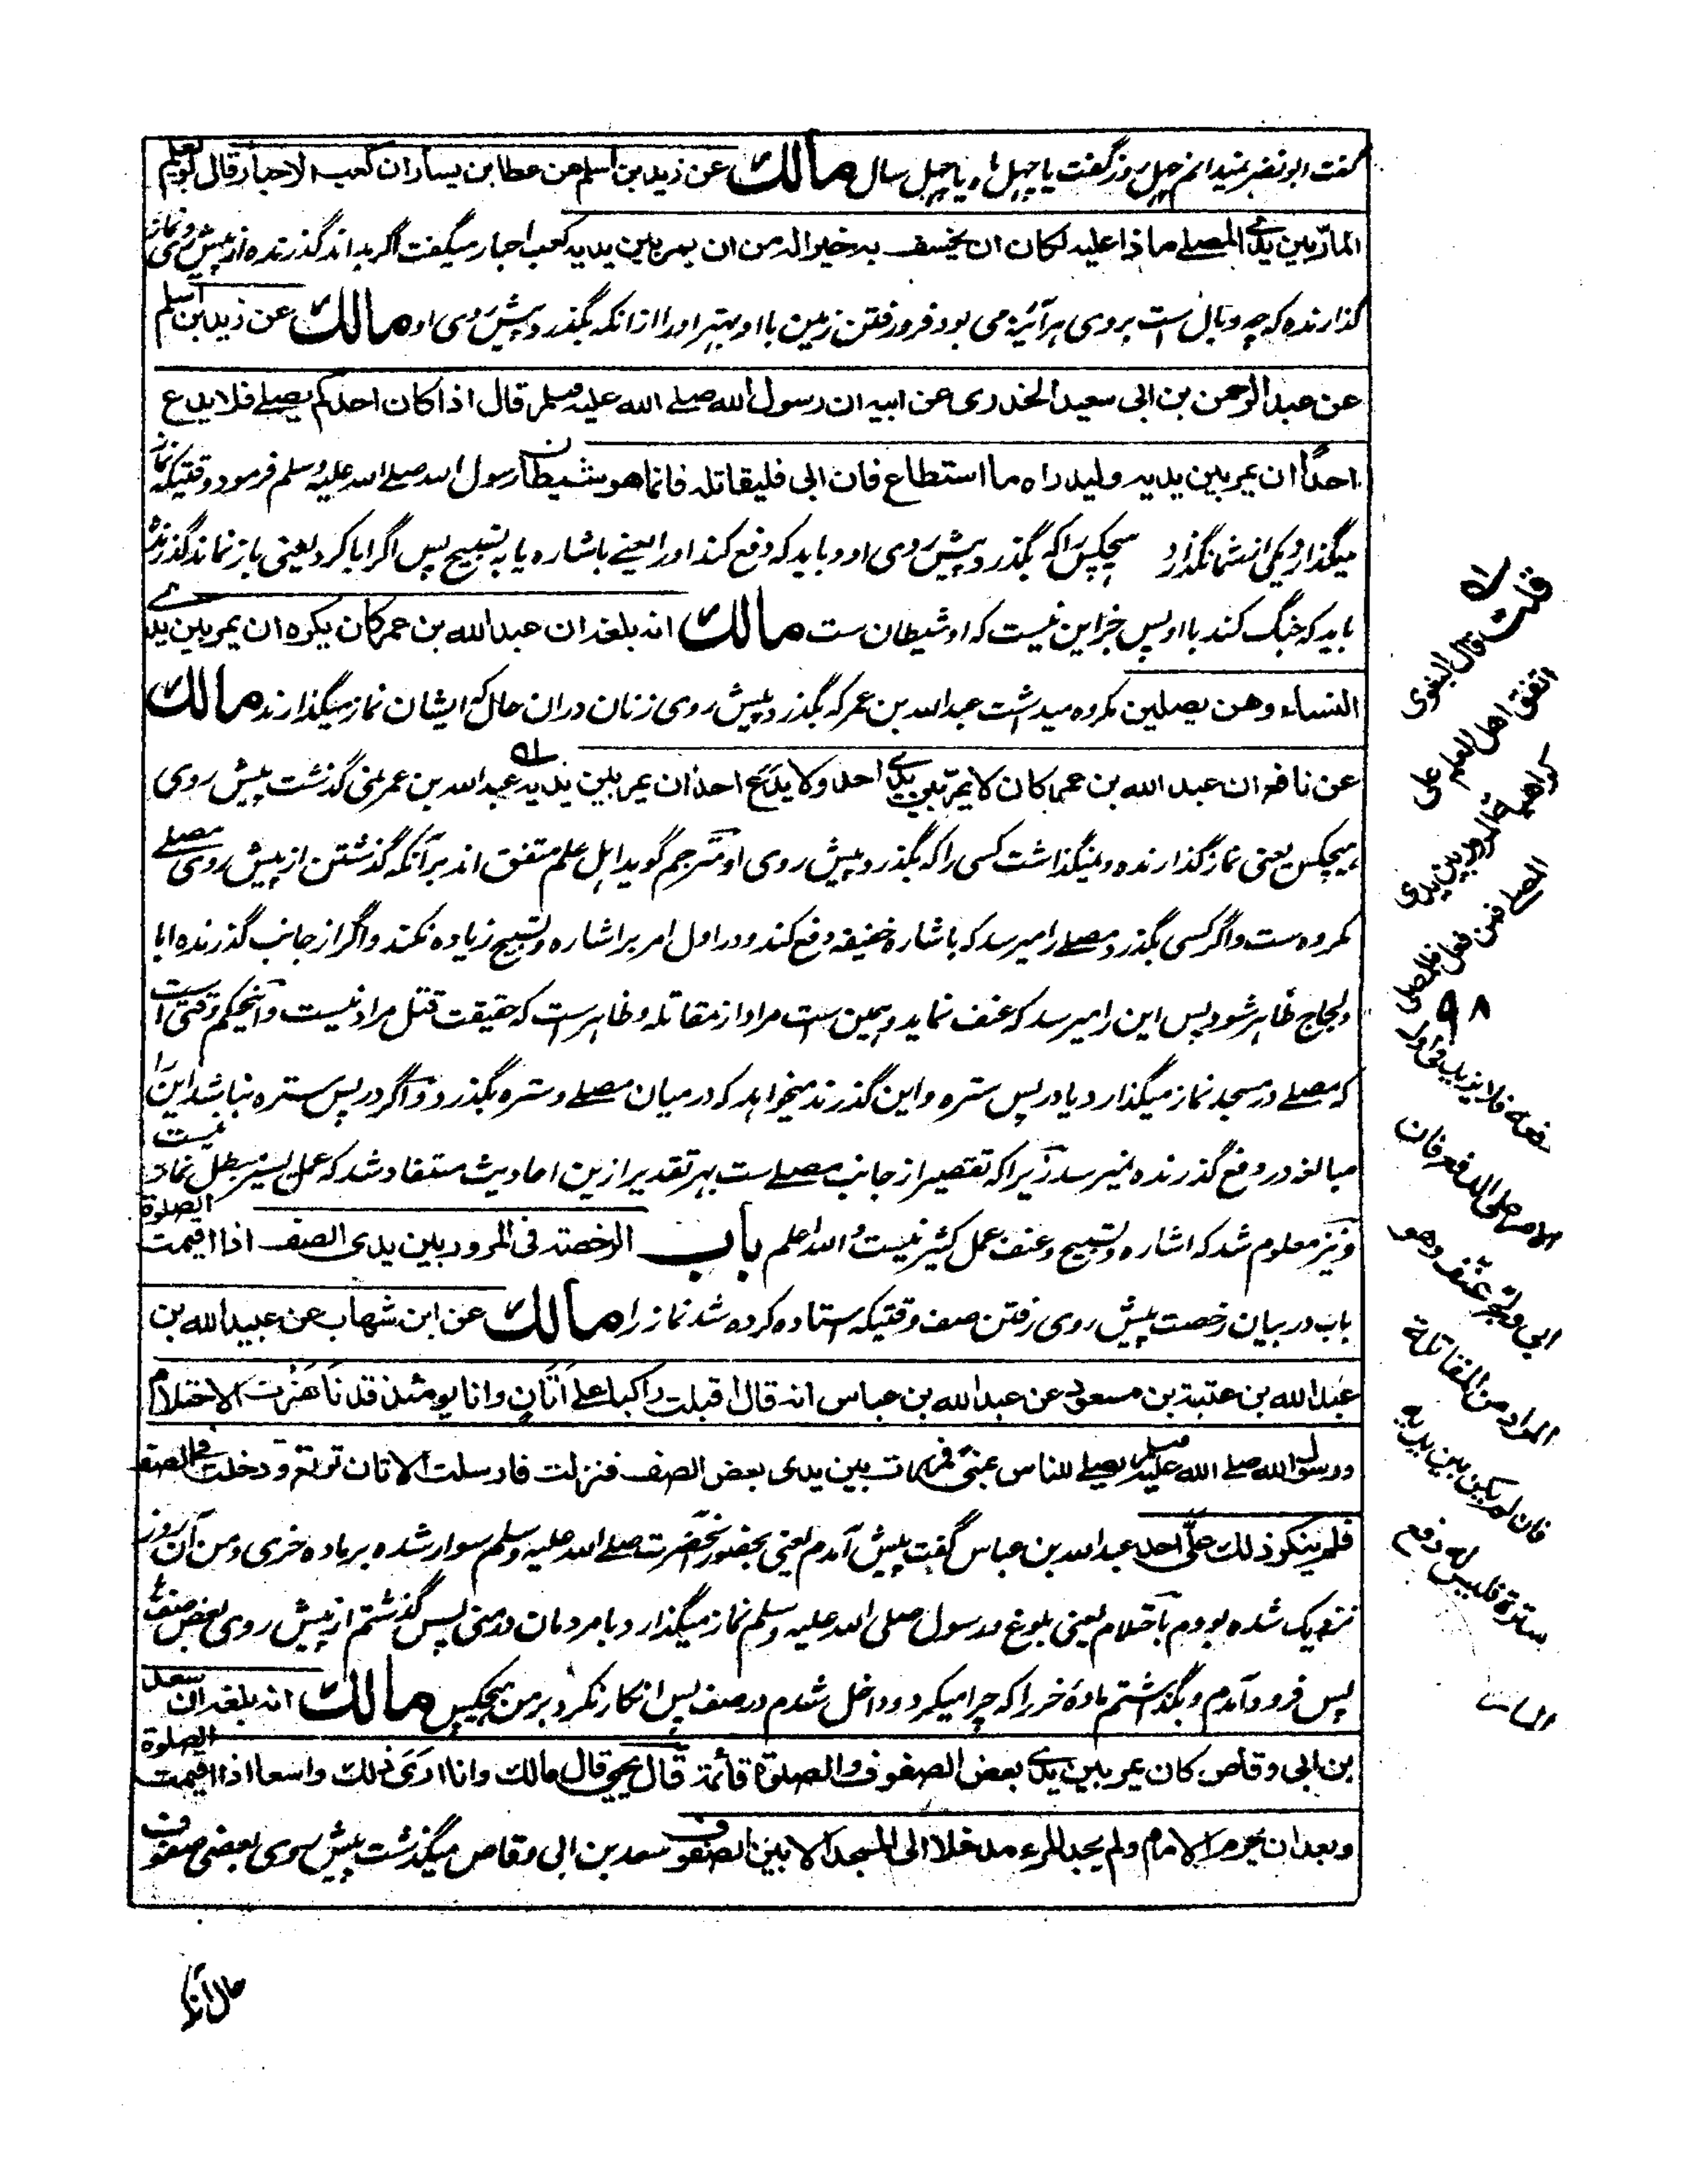 گفت ابو نضر نمیدانم چهل روز گفت یا چهل ماه یا چهل سال مالك عن زید بن اسلم عن عطا بن یسار ان کعب الاحبار قال لو یعلم
المارّ بین یدی المصلے ماذا علیه لکان ان یخسف به خیرا له من ان یمر بین یدیه کعب احبار میگفت اگر بداند گذرنده از پیش روی نماز
گذارنده که چه وبال ست بروی هر آئینه می بود فرو رفتن زمین با او بهتر او را از انکه بگذرد پیش روی او مالك عن زید بن اسلم
عن عبد الرحمن بن ابی سعید الخدری عن ابیه ان رسول الله صلے الله علیه وسلم قال اذا کان احدکم یصلے فلا یدع
احدًا ان یمر بین یدیه ولیدراه ما استطاع فان ابی فلیقاتله فانما هو شیطان رسول الله صلے الله علیه وسلم فرمود وقتیکه نماز
میگذارد یکی از شما نگذارد هیچکس را که بگذرد پیش روی او و باید که دفع کند او را یعنے باشاره یا به تسبیح پس اگر ابا کرد یعنی باز نماند گذرنده
باید که جنگ کند با او پس جز این نیست که او شیطان ست مالك انه بلغه ان عبد الله بن عمر کان یکره ان یمر بین یدے
النساء وهن یصلین مکروه میداشت عبد الله بن عمر که بگذرد پیش روی زنان در ان حال که ایشان نماز میگذارند مالك
عن نافع ان عبد الله بن عمر کان لا یمر بین یدے احد ولا یدع احدا ان یمر بین یدیه عبد الله بن عمر نمی گذشت پیش روی
هیچکس یعنی نماز گذارنده و نمیگذاشت کسی را که بگذرد پیش روی او مترجم گوید اهل علم متفق اند بر آنکه گذشتن از پیش روی مصلے
مکروه ست و اگر کسی بگذرد مصلے را میرسد که باشاره خفیفه دفع کند و در اول امر بر اشاره و تسبیح زیاده نکند و اگر از جانب گذرنده ابا
و لجاج ظاهر شود پس این را میرسد که عنف نماید و همین ست مراد از مقاتله و ظاهر است که حقیقت قتل مراد نیست و اینحکم وقتی است
که مصلے در مسجد نماز میگذارد یا در پس ستره و این گذرنده میخواهد که در میان مصلے و ستره بگذرد و اگر در پس ستره نباشد این را
مبالغه در دفع گذرنده نمیرسد زیرا که تقصیر از جانب مصلے ست بهر تقدیر ازین احادیث مستفاد شد که عمل یسیر مبطل نماز نیست
و نیز معلوم شد که اشاره و تسبیح و عنف عمل کثیر نیست والله اعلم باب الرخصة فی المرور بین یدی الصف اذا اقیمت الصلوة
باب در بیان رخصت پیش روی رفتن صف وقتیکه استاده کرده شد نماز را مالك عن ابن شهاب عن عبید الله بن
عبد الله بن عتبة بن مسعود عن عبد الله بن عباس انه قال اقبلت راکبا علے اَتَانٍ وانا یومئذ قد نَاهَزْت الاحتلام
ورسول الله صلے الله علیه وسلم یصلے للناس بمنی فمررت بین یدی بعض الصف فنزلت فارسلت الاتان ترتع ودخلت فی الصف
فلم ینکر ذلك علیَّ احد عبد الله بن عباس گفت پیش آمدم یعنی بحضور آنحضرت صلے الله علیه وسلم سوار شده بر ماده خری و من آن روز
نزدیک شده بودم باحتلام یعنی بلوغ و رسول صلی الله علیه وسلم نماز میگذارد با مردمان در منی پس گذشتم از پیش روی بعض صف
پس فرود آمدم و بگذاشتم ماده خر را که چرا میکرد و داخل شدم در صف پس انکار نکرد بر من هیچکس مالك انه بلغه ان سعد
بن ابی وقاص کان یمر بین یدے بعض الصفوف والصلوة قائمة قال یحیی قال مالك وانا ارَی ذلك واسعا اذا اقیمت الصلوة
وبعد ان یحرم الامام ولم یجد المرء مدخلا الی المسجد الا بین الصفوف سعد بن ابی وقاص میگذشت پیش روی بعضی صفوف
قلت قال البغوی
اتفق اهل العلم علی
کراهیة المرور بین یدی
المصلی فمن فعل فللمصلی
۹۸
دفعه فلا یزید فی اول
الامر علی الدفع فان
ابی ولج عنف وهو
المراد من المقاتلة
فان لم یکن بین یدیه
سترة فلیس له دفع
المار